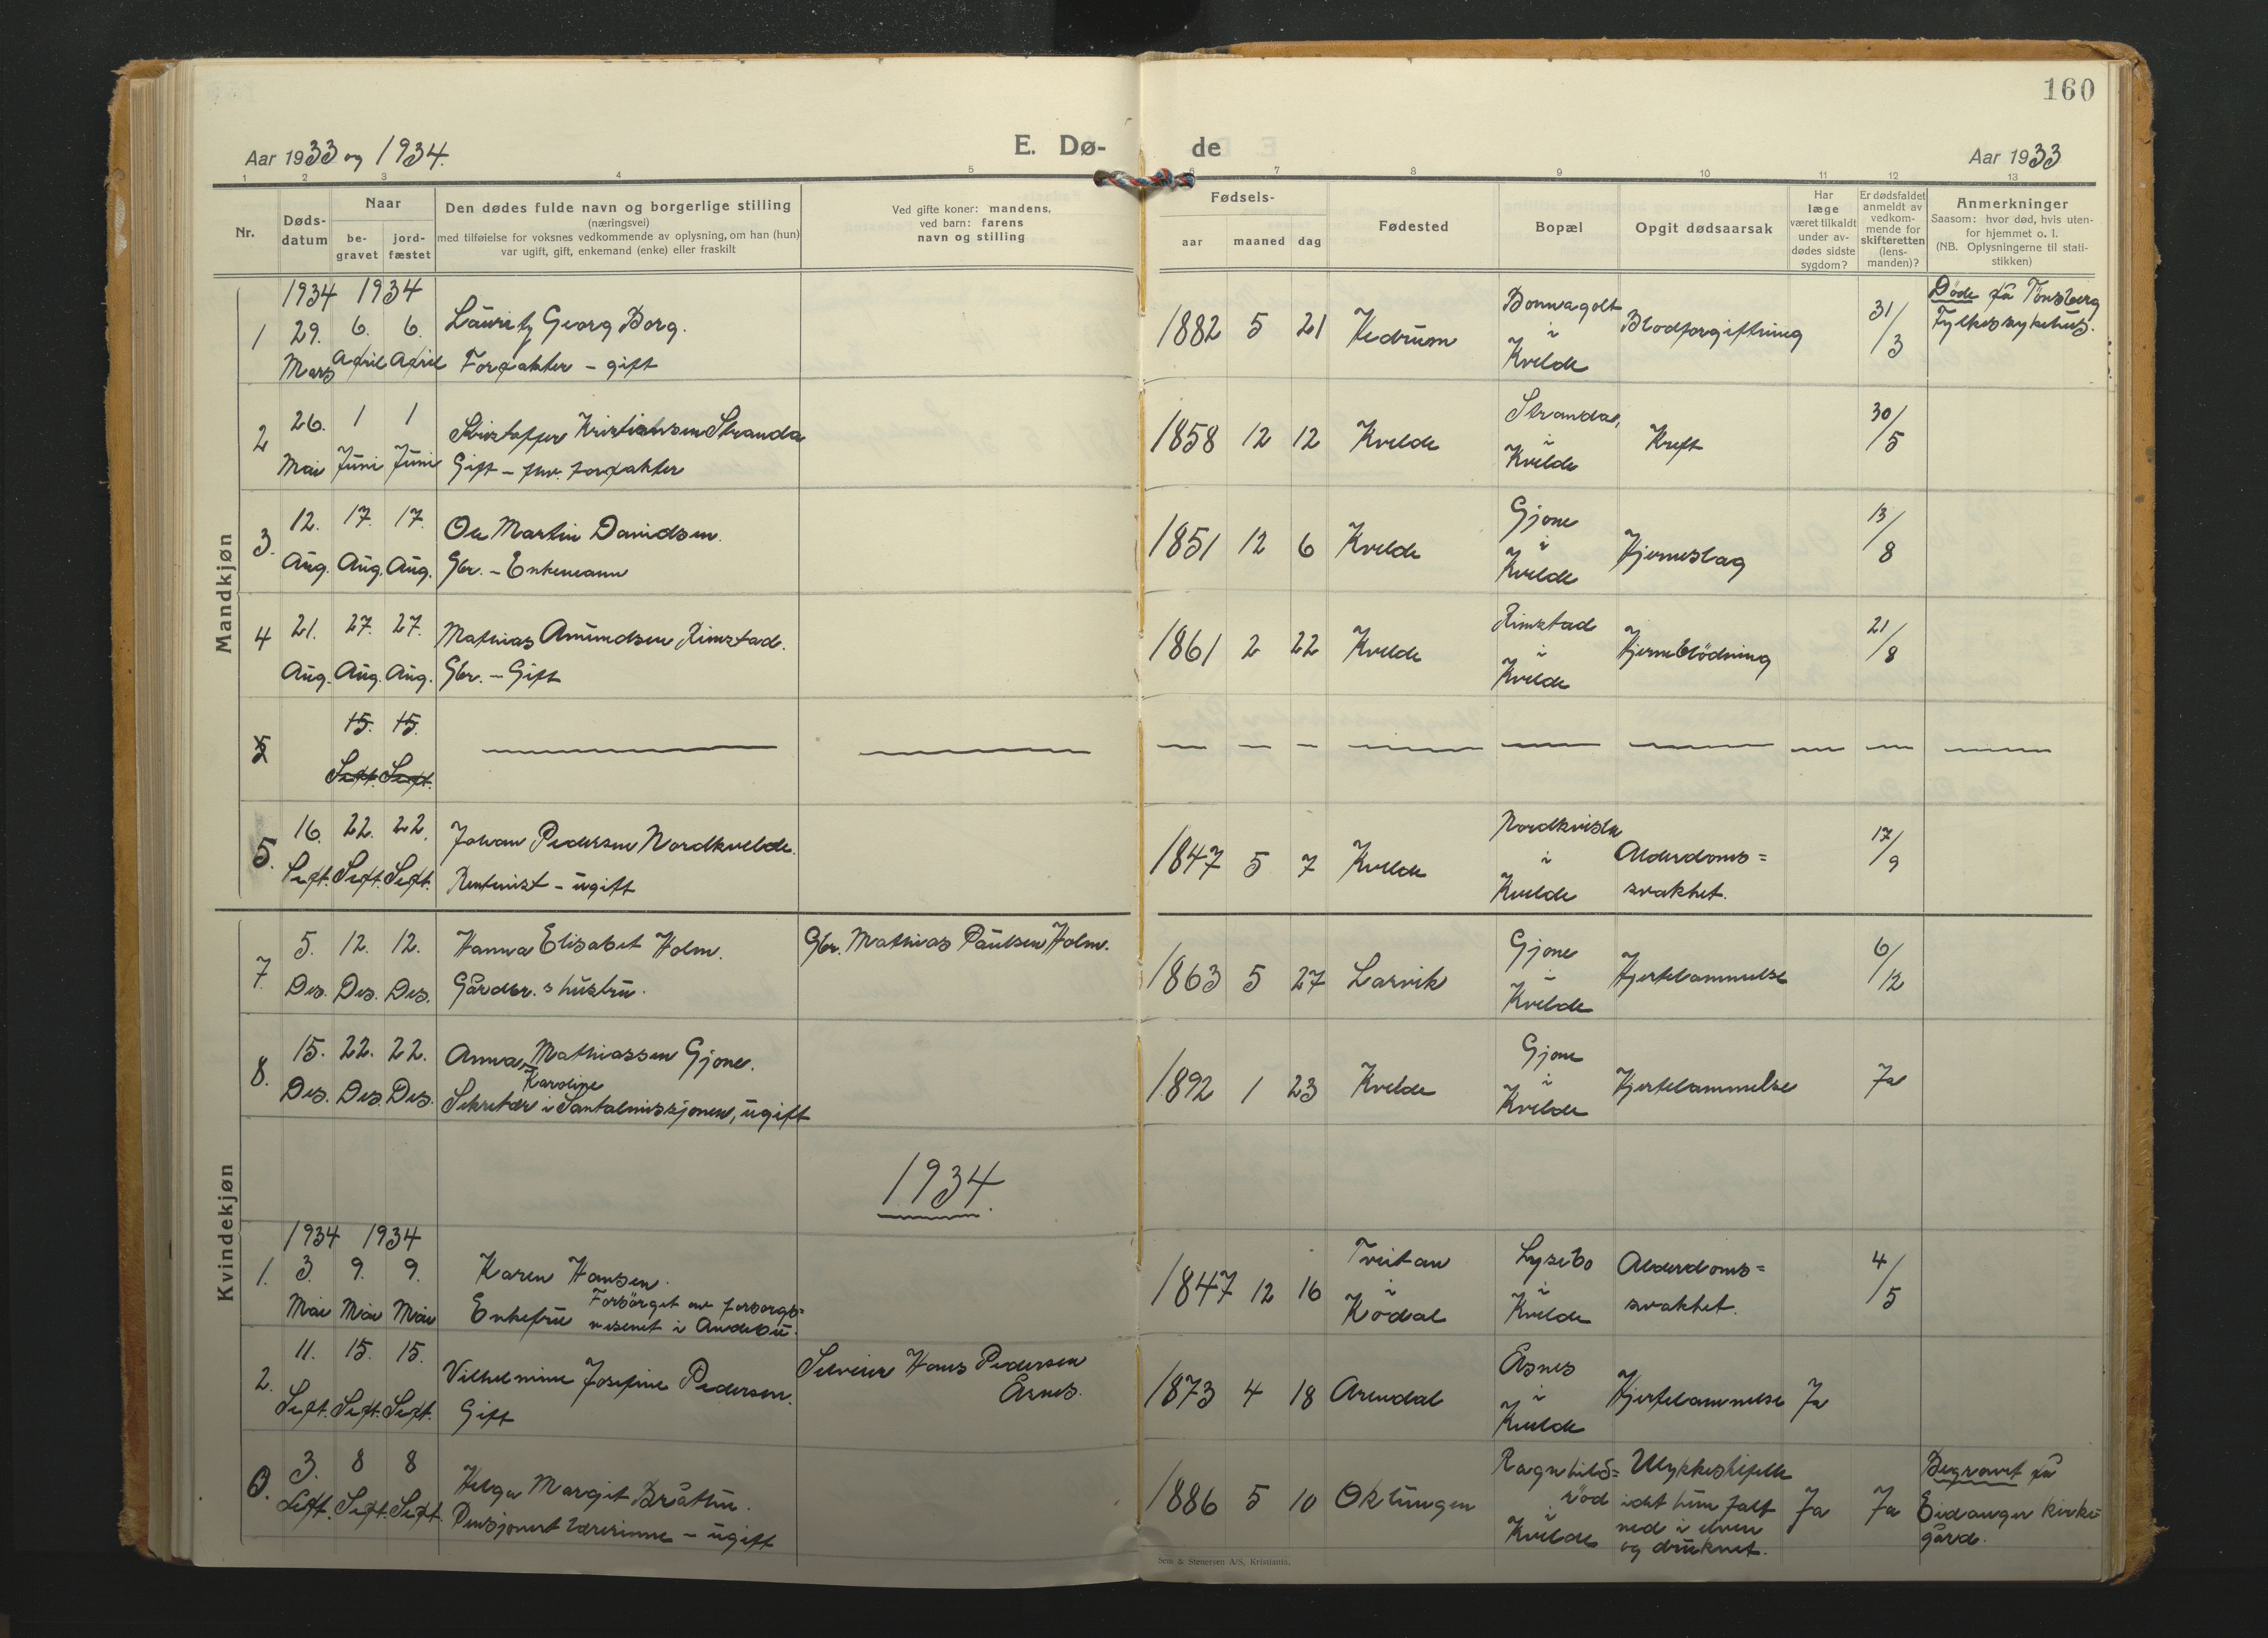 160
Aar 1933 og 1934.
E. Dø-
de
Aar 1933
1 2 3 4 5 6 7 8 9 10 11 12 13
Nr.
Døds-
datum
Naar
be-
gravet
jord-
fæstet
Den dødes fulde navn og borgerlige stilling
(næringsvei)
med tilføielse for voksnes vedkommende av oplysning, om han (hun)
var ugift, gift, enkemand (enke) eller fraskilt
Ved gifte koner: mandens,
ved barn: farens
navn og stilling
Fødsels-
aar maaned dag
Fødested
Bopæl
Opgit dødsaarsak
Har
læge
været tilkaldt
under av-
dødes sidste
sygdom?
Er dødsfaldet
anmeldt av
vedkom-
mende for
skifteretten
(lens-
manden)?
Anmerkninger
Saasom: hvor død, hvis uten-
for hjemmet o. l.
(NB. Oplysningerne til stati-
stikken)
Mandkjøn
1934 1934
1 29. 6. 6. Lauritz Georg Borg.
Mars April April Forpakter - gift
1882 5 21 Hedrum
i
Kvelde
Blodforgiftning
31/3
Døde på Tönsberg
Fylkessykehus.
2 26. 1 1 Kristoffer Kristiansen Stranda
Mai Juni Juni Gift - fhv. forpakter
1858 12 12 Kvelde
Stranda,
i
Kvelde
Kreft
30/5
3. 12. 17. 17. Ole Martin Davidsen.
Aug. Aug. Aug. Gbr. - Enkemann
1851 12 6 Kvelde
Gjone
i
Kvelde
Hjerneslag
13/8
4 21. 27. 27. Mathias Amundsen Rimstad.
Aug. Aug. Aug. Gbr. - Gift
1861 2 22 Kvelde
Rimstad
i
Kvelde
Hjerneblödning
21/8
5 15. 15.
Sept. Sept.
5. 16. 22. 22. Johan Pedersen Nordkvelde.
Sept. Sept. Sept. Rentenist - ugift
1847 5 7 Kvelde
i
Kvelde
Alderdoms=
svakhet.
17/9
Kvindekjøn
7. 5. 12. 12. Hanna Elisabet Holm.
Des. Des. Des. Gårdbr.s hustru.
Gbr. Mathias Paulsen Holm.
1863 5 27 Larvik
Gjone
i
Kvelde
Hjertelammelse
6/12
8. 15. 22. 22. Anna Mathiassen Gjone.
Karoline
Des. Des. Des. Sekretær i Santalmissjonen, ugift
1892 1 23 Kvelde
Gjone
i
Kvelde
Hjertelammelse
Ja
1934.
1934 1934
1. 3. 9. 9. Karen Hansen.
Mai Mai Mai Enkefru Forsörget av forsorgs=
vesenet i Andebu.
1847 12 16
Tveitan
i
Kodal
Lysebo
i
Kvelde
Alderdoms=
svakhet.
4/5
2. 11. 15. 15. Vilhelmine Josefine Pedersen.
Sept. Sept. Sept. Gift
Selveier Hans Pedersen
Åsnes.
1873 4 18 Arendal
Åsnes
i
Kvelde
Hjertelammelse Ja
3. 3. 8 8 Helga Margit Bråttin.
Sept. Sept. Sept. Pensjonert lærerinne - ugift
1886 5 10 Oklungen
Ragnhilds=
röd
i
Kvelde
Ulykkestilfelle
idet hun falt
ned i elven
og druknet.
Ja Ja
Begravet på
Eidanger kirke=
gård.
Sem & Stenersen A/S, Kristiania.